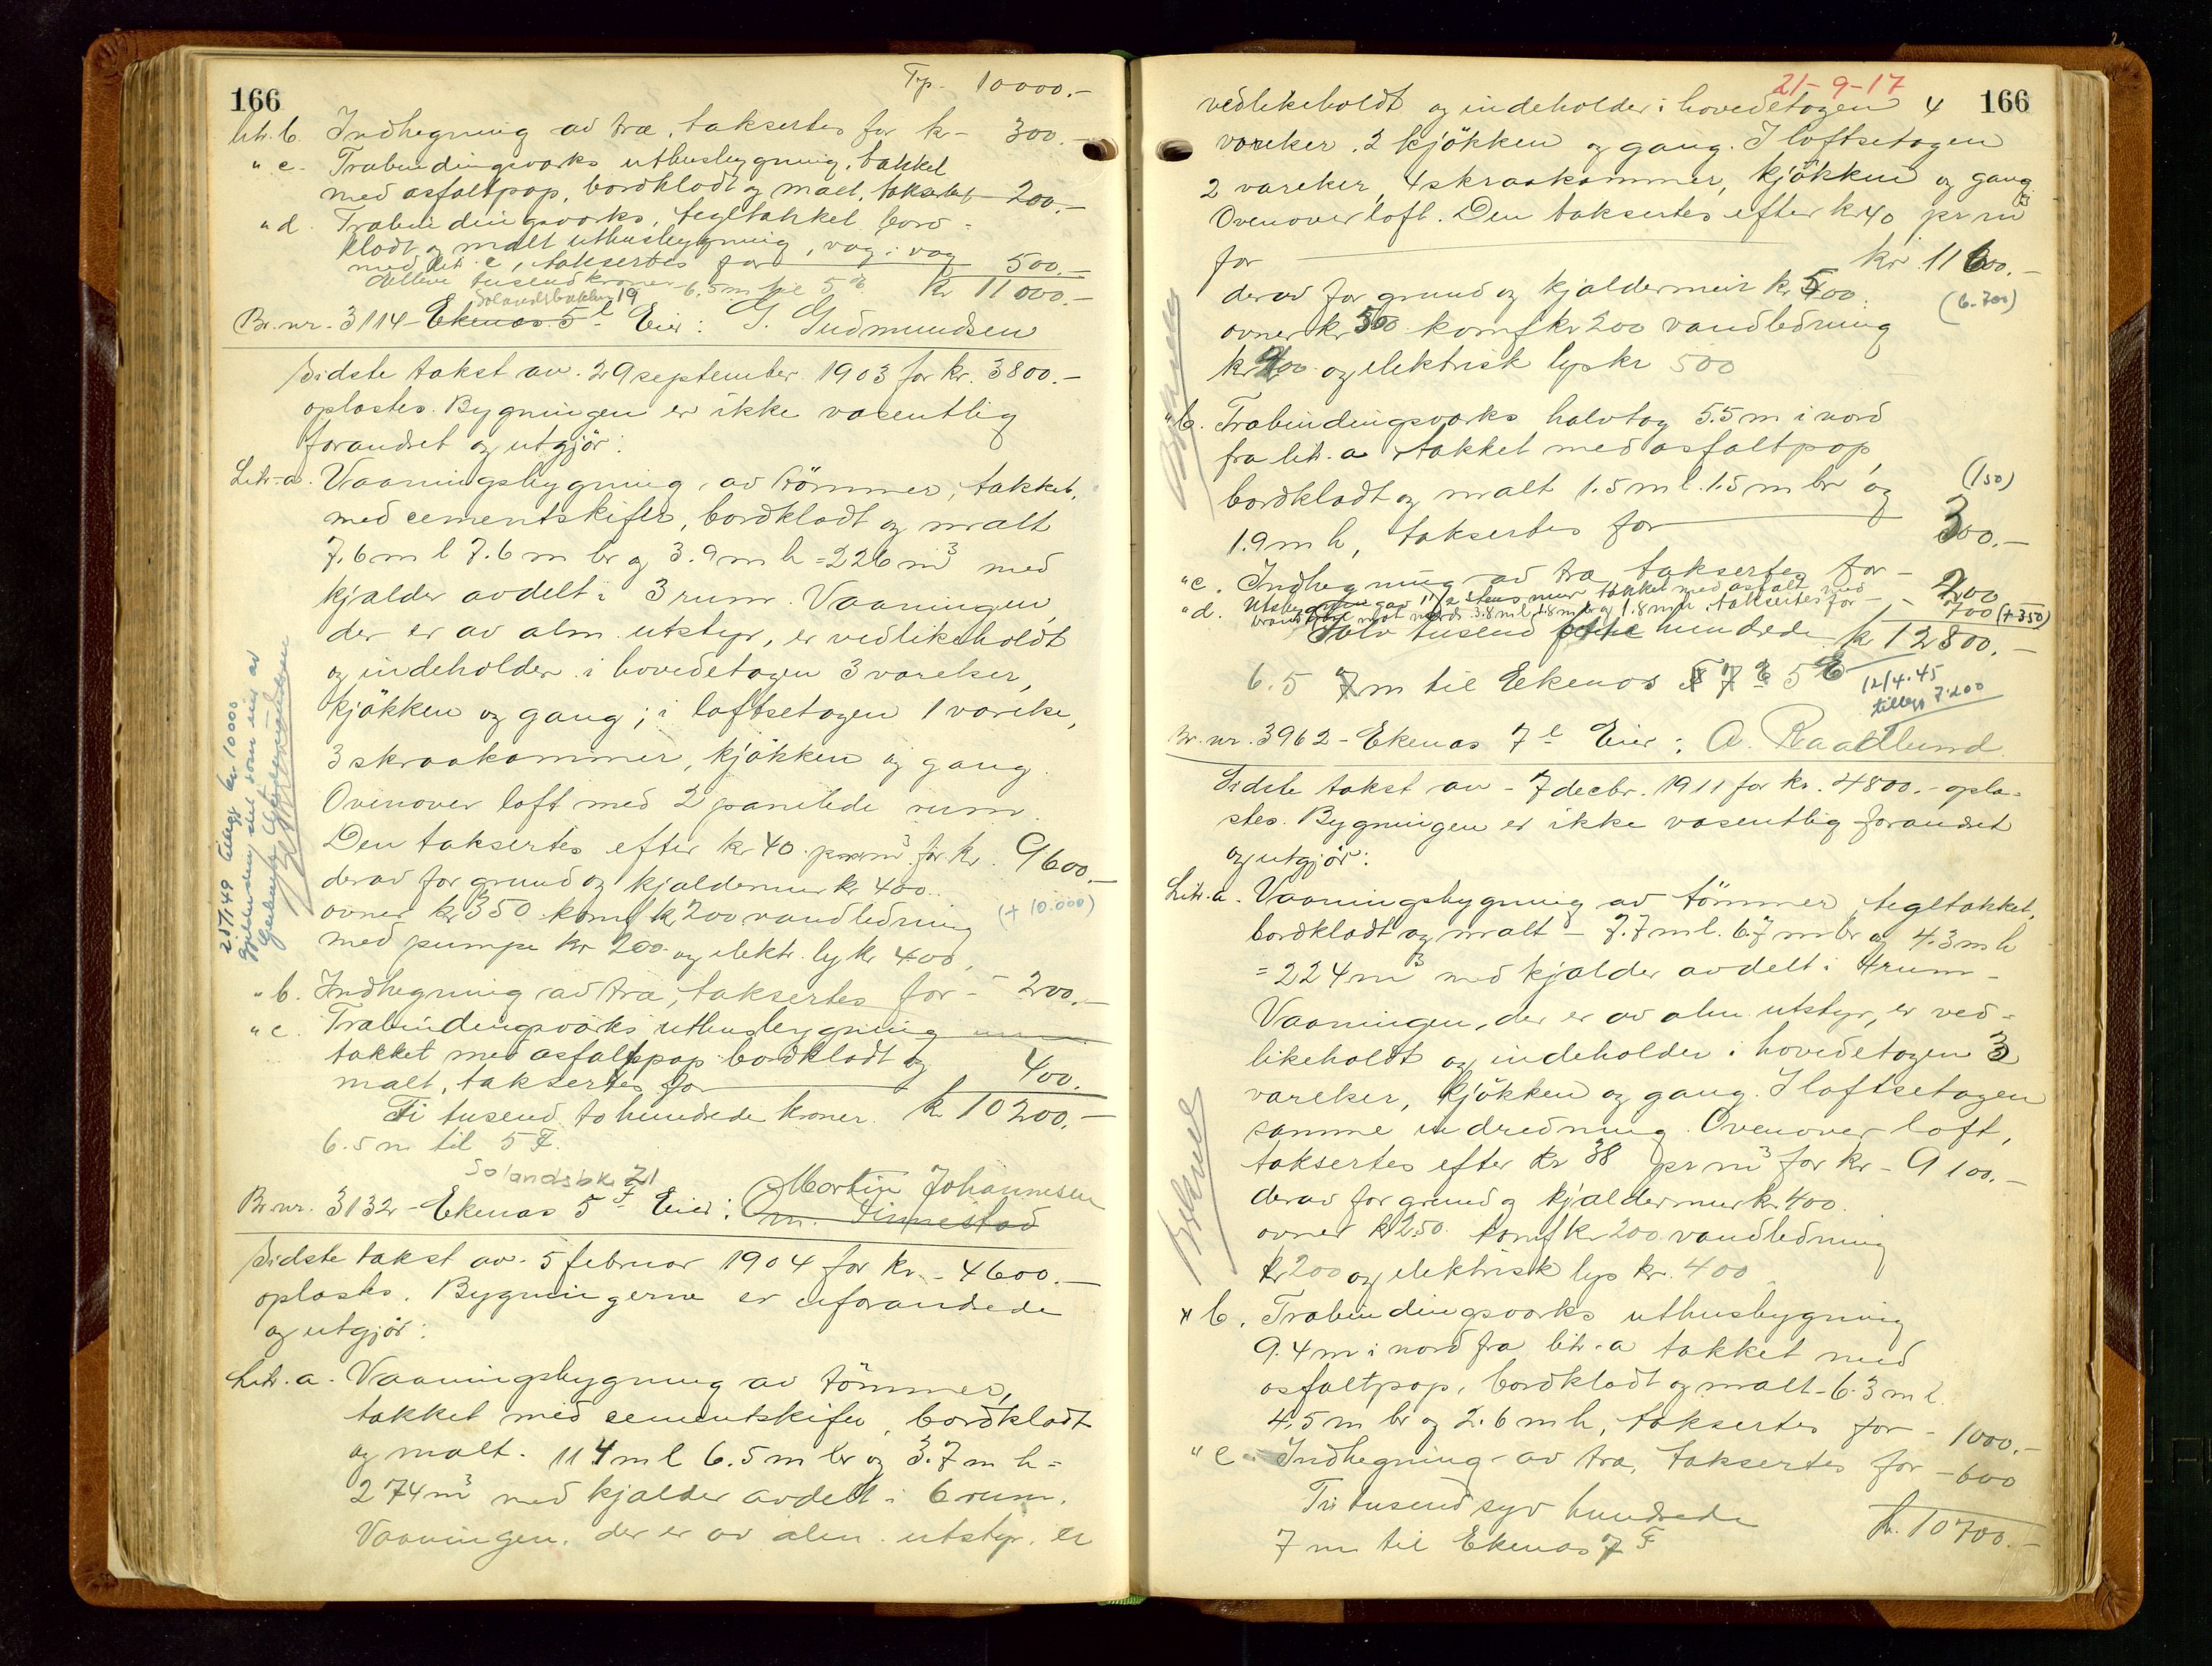 166
Trp. 10000.-
litr. b. Indhegning av træ, taksertes for kr - 300.-
" c. Træbindingsværks uthusbygning, tækket
med asfaltpap, bordklædt og malt, taksertes - 200.-
" d. Træbindingsværks, tegltækket bord-
klædt og malt uthusbygning, væg i væg
med litr. c, taksertes for 500.-
Elleve tusend kroner - 6.5 m til 5 kr 11000.-
Solandsbakken 19
Br. nr. 3114 - Ekenæs 5 Eier: G. Gudmundsen
Sidste takst av 29 september 1903 for kr. 3800.-
oplæstes. Bygningen er ikke væsentlig
forandret og utgjör:
Litr. a. Vaaningsbygning av tömmer, tækket
med cementskifer, bordklædt og malt
7.6 m l 7.6 m br og 3.9 m h = 226 m³ med
kjælder avdelt i 3 rum. Vaaningen,
der er av alm. utstyr, er vedlikeholdt
og indeholder i hovedetagen 3 værelser,
kjökken og gang; i loftsetagen 1 værelse,
3 skraakammer, kjökken og gang.
Ovenover loft med 2 panelede rum.
Den taksertes efter kr 40 pr m³ for kr. 9600.-
derav for grund og kjældermur kr 400.
ovner kr 350 komf kr 200 vandledning (+ 10.000)
med pumpe kr 200 og elektr. ly kr 400,
" b. Indhegning av træ, taksertes for - 200.-
" c. Træbindingsværks uthusbygning
tækket med asfaltpap bordklædt og
malt, taksertes for 400.
Ti tusend to hundrede kroner. kr 10200.-
6.5 m til 5 F.
25/7 49 tillegg kr. 10000
Solandsbk. 21
Martin Johannesen
Br. nr. 3132 - Ekenæs 5 F Eier: M. Finnestad
Sidste takst av 5 februar 1904 for kr. - 4600.-
oplæstes. Bygningerne er uforandrede
og utgjör:
Litr. a. Vaaningsbygning av tömmer,
tækket med cementskifer, bordklædt
og malt. 11 4 m l 6.5 m br og 3.7 m h =
274 m³ med kjælder avdelt i 6 rum.
Vaaningen, der er av alm. utstyr, er
21-9-17
166
vedlikeholdt og indeholder i hovedetagen 4
værelser, 2 kjökken og gang. I loftsetagen
2 værelser, 4 skraakammer, kjökken og gang
Ovenover loft. Den taksertes efter kr 40 pr m³
for kr. 11600.-
derav for grund og kjældermur kr 500. (6.700)
ovner kr 500 komf kr 200 vandledning
kr 200 og elektrisk lys kr 500
" b. Træbindingsværks halvtag 5.5 m i nord
fra litr. a tækket med asfaltpap,
bordklædt og malt 1.5 m l. 1.5 m br og (150)
1.9 m h, taksertes for 300.-
" c. Indhegning av træ, taksertes for - 200
" d. Utsbygning av 1 1/2 stens mur tækket med asfalt med
mot nord 3.8 m l 1.8 m br og 1.8 m h, taksertes for - 700 (+350)
Tolv tusend otte hundrede kr 12800.-
6.5 7 m til Ekenæs 5 E
12/4.45
tillegg 7.200
Br. nr. 3962 - Ekenæs 7 Eier: A. Raadlund
Sidste takst av - 7 decbr. 1911 for kr. 4800.- oplæ-
stes. Bygningen er ikke væsentlig forandret
og utgjör:
Litr. a. Vaaningsbygning av tömmer, tegltækket,
bordklædt og malt - 7.7 m l. 6.7 m br og 4.3 m h
= 224 m³ med kjælder avdelt i 4 rum -
Vaaningen, der er av alm. utstyr, er ved-
likeholdt og indeholder i hovedetagen 3
værelser, kjökken og gang. I loftsetagen
samme indredning. Ovenover loft,
taksertes efter kr 38 pr m³ for kr - 9100.-
derav for grund og kjældermur kr 400.
ovner kr 250. komf kr 200 vandledning
kr 200 og elektrisk lys kr. 400
" b. Træbindingsværks uthusbygning
9.4 m i nord fra litr. a tækket med
asfaltpap, bordklædt og malt - 6.3 m l.
4.5 m br og 2.6 m h, taksertes for - 1000.-
" c. Indhegning av træ, taksertes for - 600
Ti tusend syv hundrede kr. 10700.-
7 m til Ekenæs 7 F